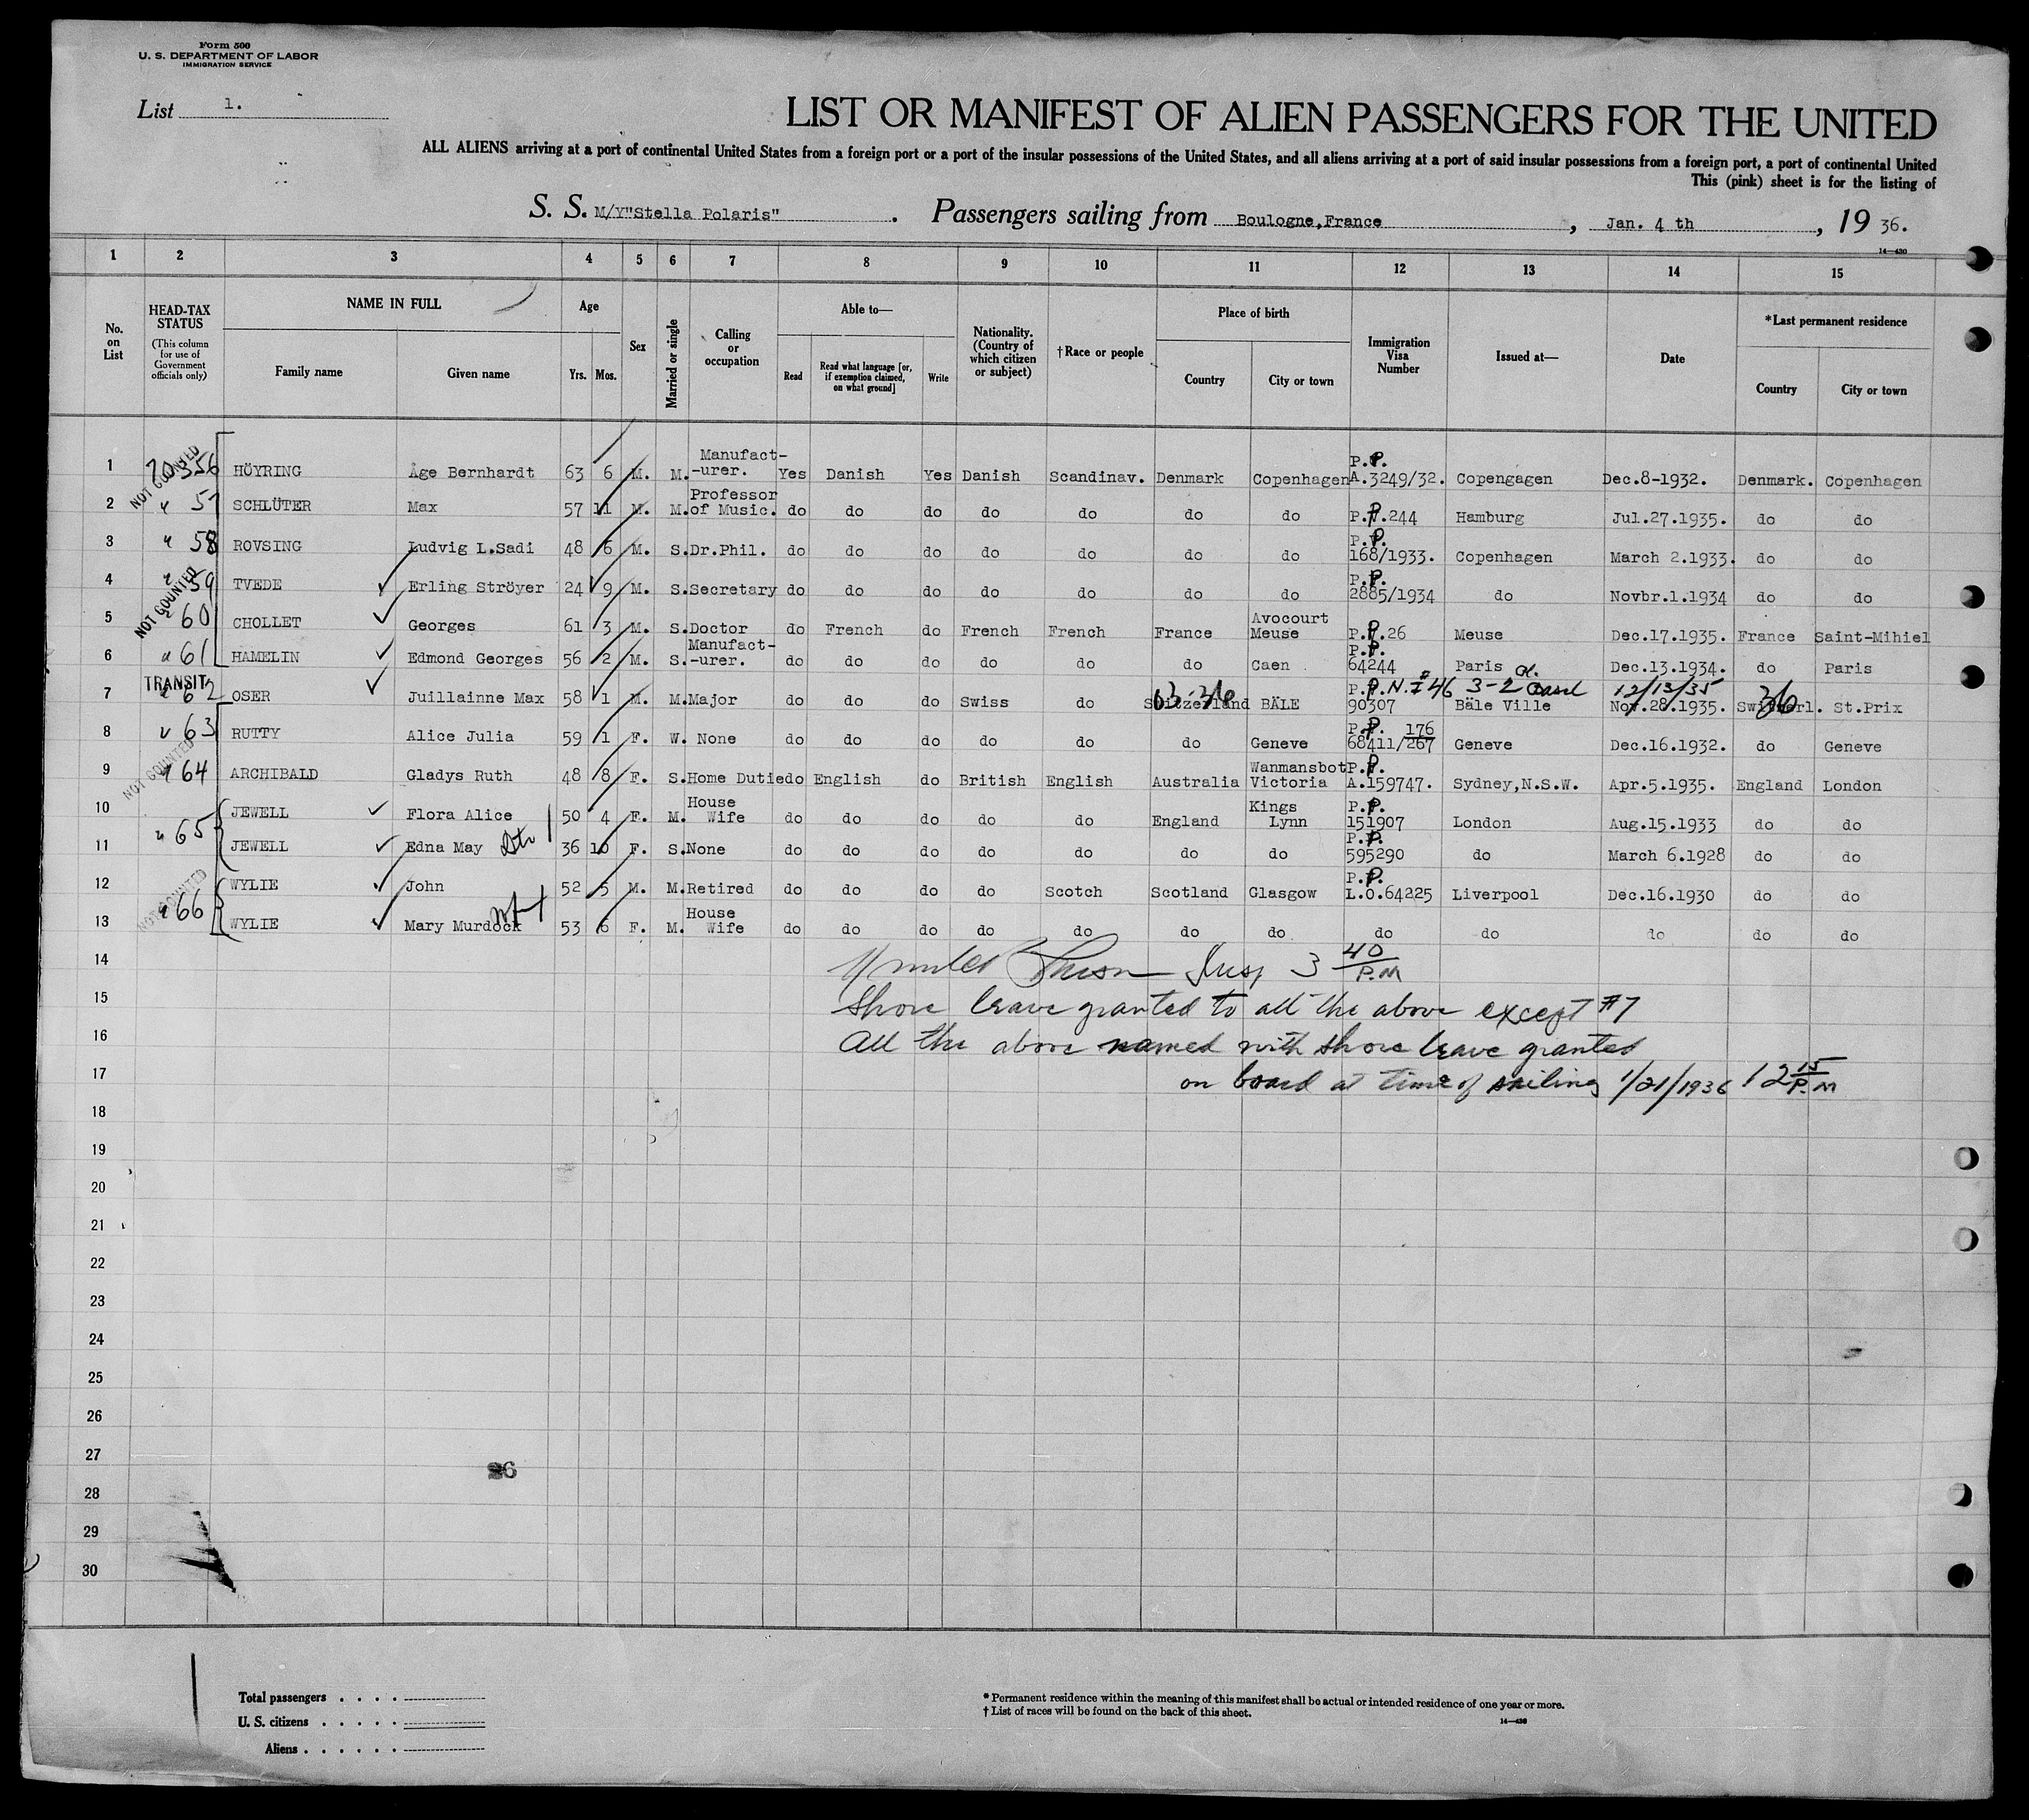 Form 500
U. S. DEPARTMENT OF LABOR
IMMIGRATION SERVICE
List 1.
LIST OR MANIFEST OF ALIEN PASSENGERS FOR THE UNITED
ALL ALIENS arriving at a port of continental United States from a foreign port or a port of the insular possessions of the United States, and all aliens arriving at a port of said insular possessions from a foreign port, a port of continental United
This (pink) sheet is for the listing of
S. S. M/Y"Stella Polaris" . Passengers sailing from Boulogne,France , Jan. 4 th , 19 36.
14—430
1 2 3 4 5 6 7 8 9 10 11 12 13 14 15
No. on List
HEAD-TAX STATUS (This column for use of Government officials only)
NAME IN FULL
Family name Given name
Age Yrs. Mos.
Sex
Married or single
Calling or occupation
Able to—
Read Read what language [or, if exemption claimed, on what ground] Write
Nationality. (Country of which citizen or subject)
†Race or people
Place of birth
Country City or town
Immigration Visa Number
Issued at—
Date
*Last permanent residence
Country City or town
NOT COUNTED
1 20356 HÖYRING Åge Bernhardt 63 6 M. M. Manufact-urer. Yes Danish Yes Danish Scandinav. Denmark Copenhagen P.P. A.3249/32. Copengagen Dec.8-1932. Denmark. Copenhagen
2 " 57 SCHLÜTER Max 57 11 M. M. Professor of Music. do do do do do do do P.P.244 Hamburg Jul.27.1935. do do
3 " 58 ROVSING Ludvig L.Sadi 48 6 M. S. Dr.Phil. do do do do do do do P.P. 168/1933. Copenhagen March 2.1933. do do
NOT COUNTED
4 " 59 TVEDE Erling Ströyer 24 9 M. S. Secretary do do do do do do do P.P. 2885/1934 do Novbr.1.1934 do do
5 " 60 CHOLLET Georges 61 3 M. S. Doctor do French do French French France Avocourt Meuse P.P.26 Meuse Dec.17.1935. France Saint-Mihiel
6 " 61 HAMELIN Edmond Georges 56 2 M. S. Manufact-urer. do do do do do do Caen P.P. 64244 Paris Dec.13.1934. do Paris
TRANSIT
7 " 62 OSER Juillainne Max 58 1 M. M. Major do do do Swiss do Switzerland 03-36 BÄLE P.P. 90307 3-2 Basel Bäle Ville 12/13/35 Nov.28.1935. Switzerl. 36 St.Prix
8 " 63 RUTTY Alice Julia 59 1 F. W. None do do do do do do Geneve P.P. 176 68411/267 Geneve Dec.16.1932. do Geneve
NOT COUNTED
9 " 64 ARCHIBALD Gladys Ruth 48 8 F. S. Home Dutie do English do British English Australia Wanmansbot Victoria P.P. A.159747. Sydney,N.S.W. Apr.5.1935. England London
10 JEWELL Flora Alice 50 4 F. M. House Wife do do do do do England Kings Lynn P.P. 151907 London Aug.15.1933 do do
" 65
11 JEWELL Edna May Dtr 36 10 F. S. None do do do do do do do P.P. 595290 do March 6.1928 do do
NOT COUNTED
12 WYLIE John 52 5 M. M. Retired do do do do Scotch Scotland Glasgow P.P. L.O.64225 Liverpool Dec.16.1930 do do
" 66
13 WYLIE Mary Murdock 53 6 F. M. House Wife do do do do do do do do do do do do
14 Insp 3 40 P.M
15 Shore leave granted to all the above except #7
16 All the above named with shore leave granted
17 on board at time of sailing 1/21/1936 12 15 P.M
18
19
20
21
22
23
24
25
26
27
28
29
30
Total passengers
U. S. citizens
Aliens
* Permanent residence within the meaning of this manifest shall be actual or intended residence of one year or more.
† List of races will be found on the back of this sheet.
14—430